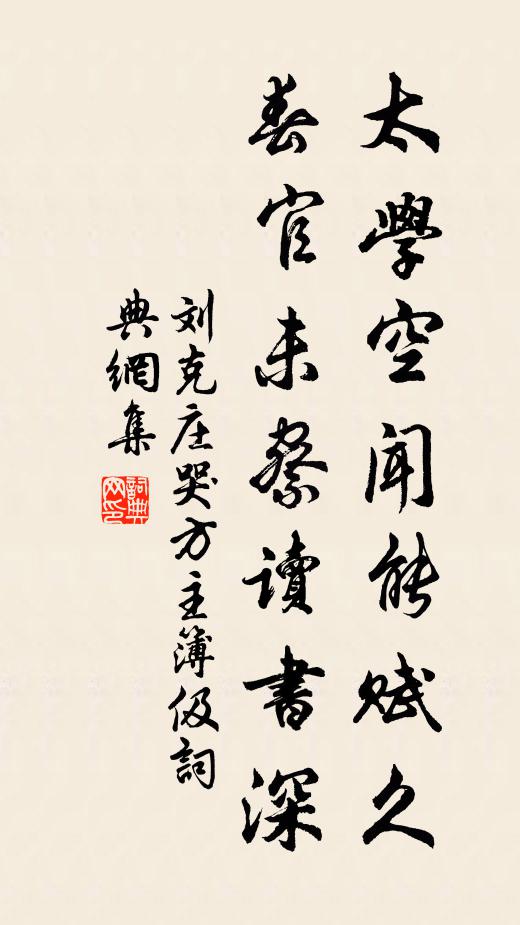 太學空聞能賦久
春官未察讀書深
刘克庄哭方主簿伋詞
典網集
詞典网印